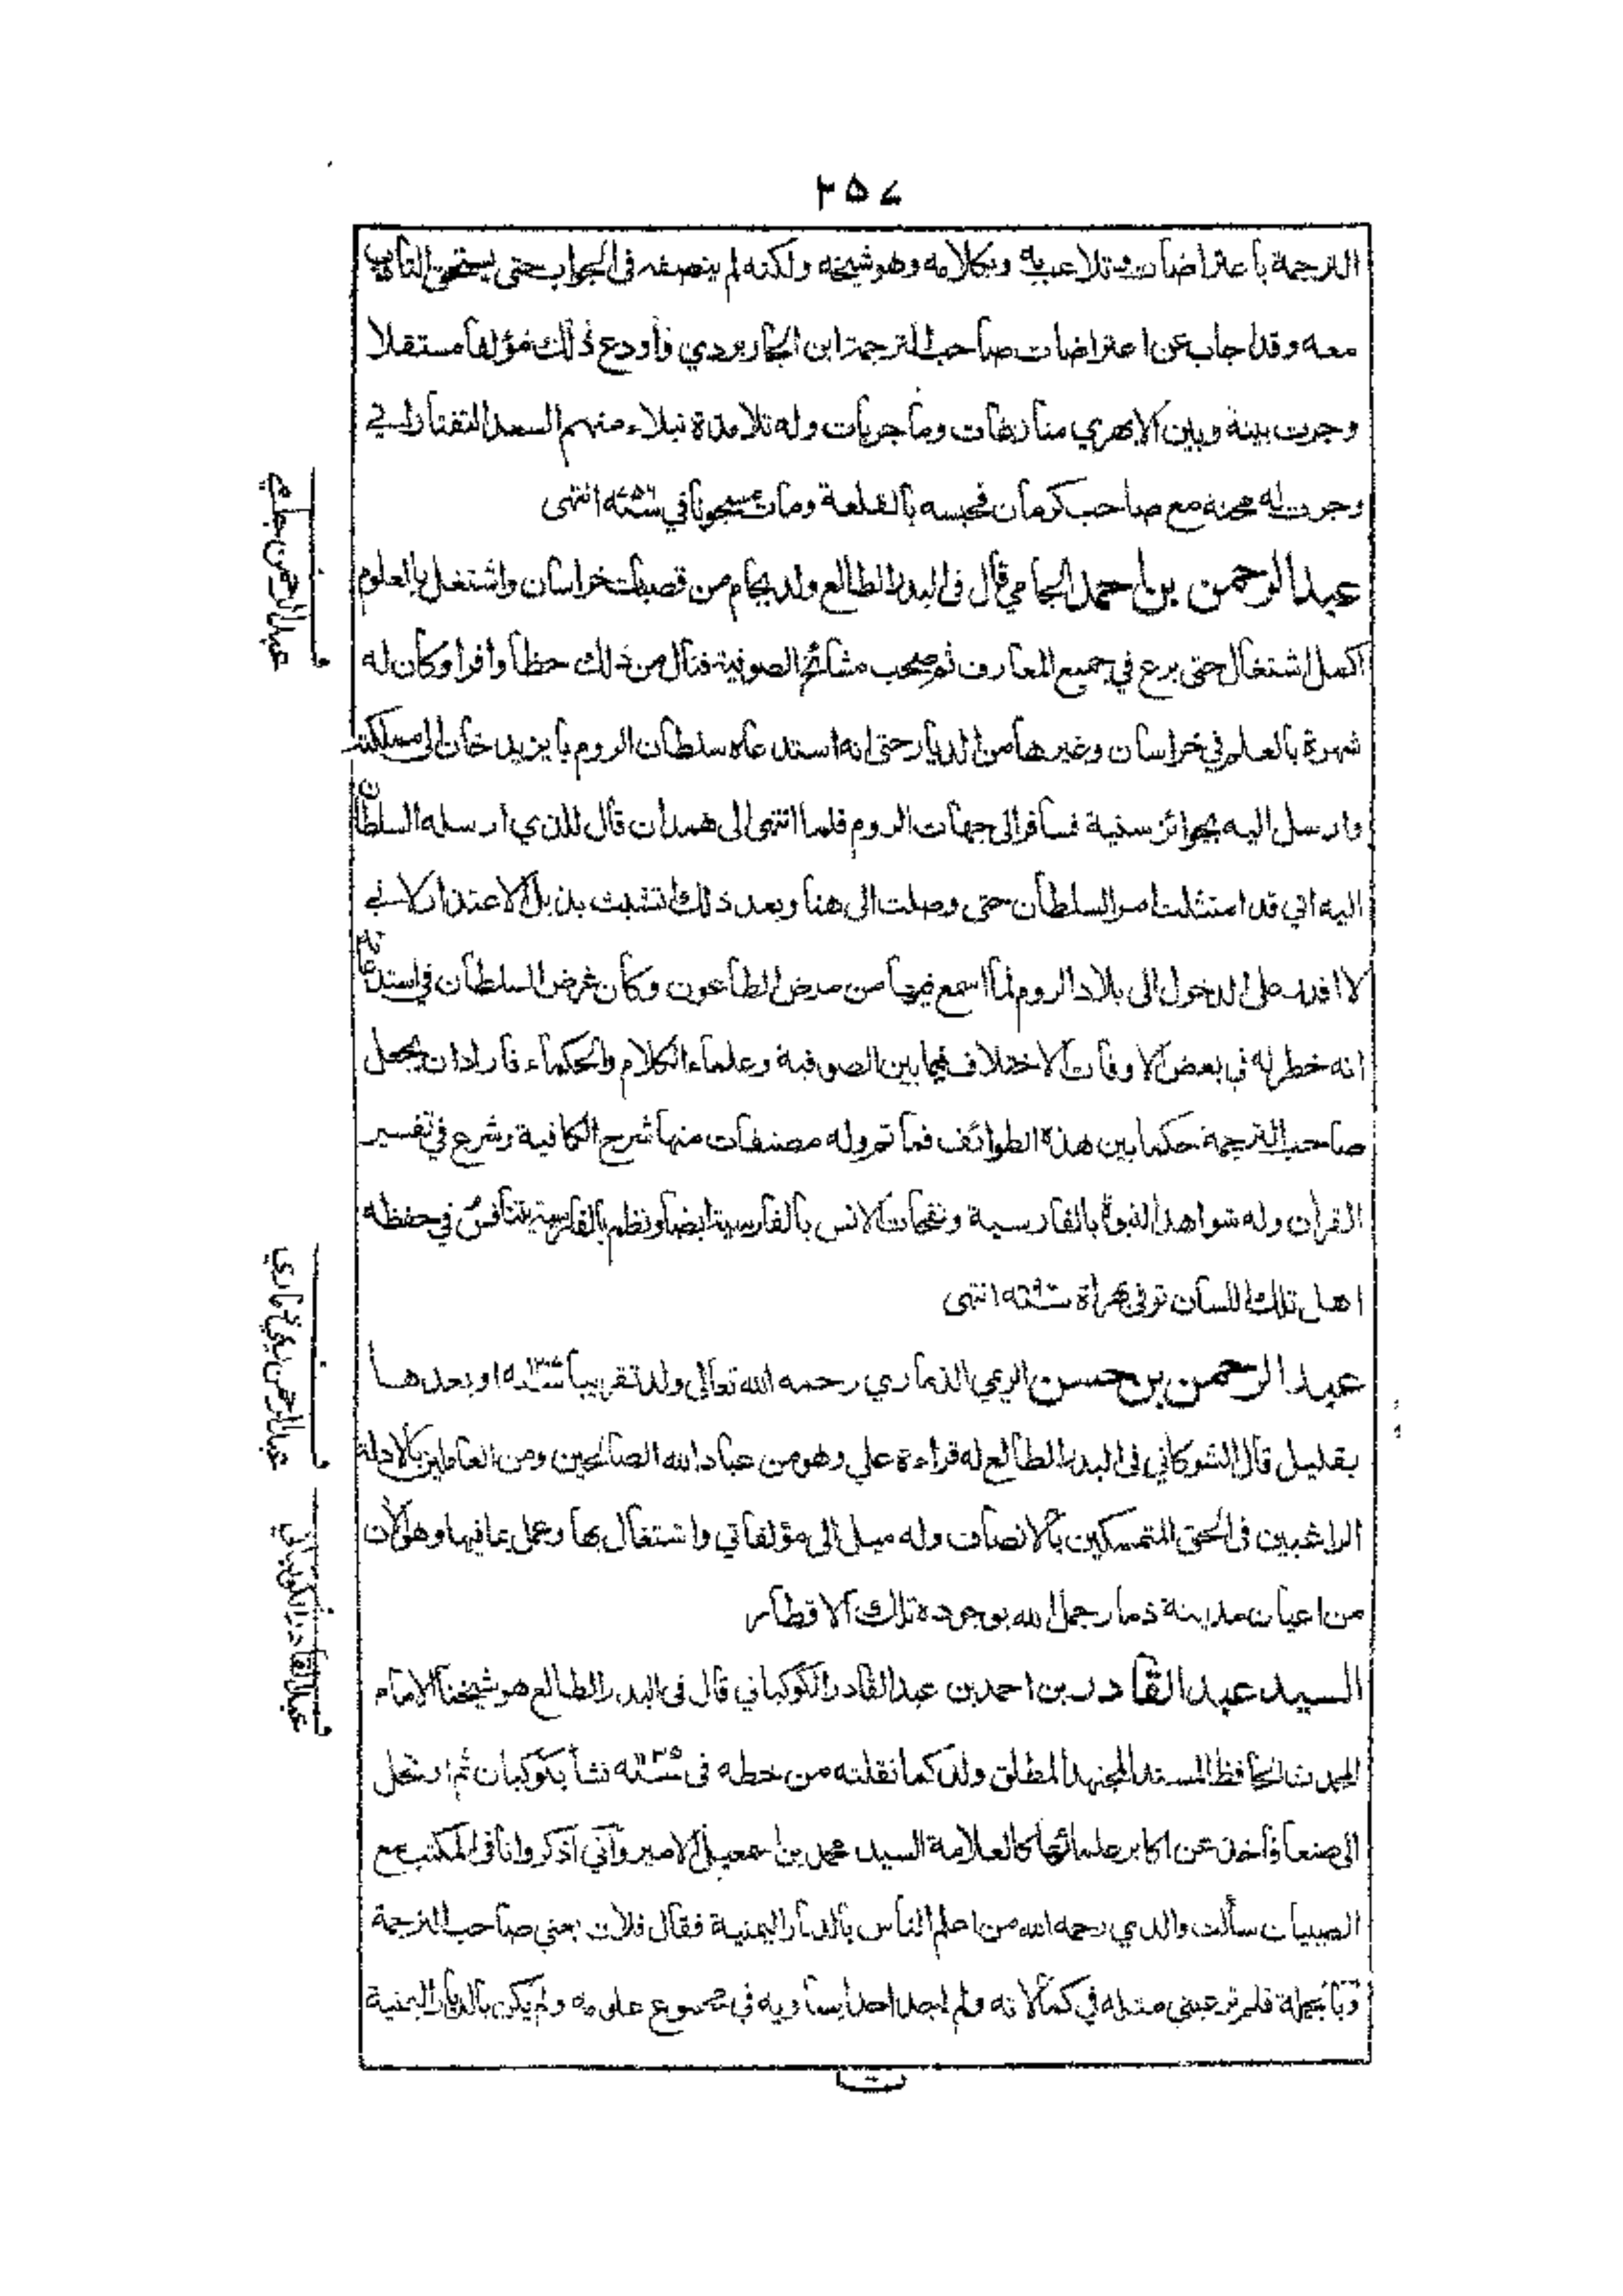 ٣٥٧
الترجمة باعتراضات وتلاعب به وبكلامه وهو شيخه ولكنه لم ينصفه فى الجواب حتى يستحق التأديب
معه وقد اجاب عن اعتراضات صاحب الترجمة ابن الجاربردي فاودع ذلك مؤلفا مستقلا
وجرت بينه وبين الابهري منازعات وماجريات وله تلامذة نبلاء منهم السعد التفتازاني
وجرت له محنة مع صاحب كرمان فحبسه بالقلعة ومات مسجونا في سنه ٧٥٦ انتهى
عبد الرحمن بن احمد الجامي قال فى البدر الطالع ولد بجام من قصبات خراسان واشتغل بالعلوم
اكمل اشتغال حتى برع في جميع المعارف ثم صحب مشائخ الصوفية فنال من ذلك حظا وافرا وكان له
شهرة بالعلم في خراسان وغيرها من الديار حتى انه استدعاه سلطان الروم بايزيد خان الى مملكته
وارسل اليه بجوائز سنية فسافر الى جهات الروم فلما انتهى الى همدان قال للذي ارسله السلطان
اليه اني قد امتثلت امر السلطان حتى وصلت الى هنا وبعد ذلك اتشبث بذيل الاعتذار لاني
لا اقدر على الدخول الى بلاد الروم لما اسمع فيها من مرض الطاعون وكان غرض السلطان في استدعائه
انه خطر له في بعض الاوقات الاختلاف فيما بين الصوفية وعلماء الكلام والحكماء فاراد ان يجعل
صاحب الترجمة حكما بين هذه الطوائف فما تم وله مصنفات منها شرح الكافية وشرع في تفسير
القرآن وله شواهد النبوة بالفارسية ونفحات الانس بالفارسية ايضا ونظم بالفارسية يتنافس في حفظه
اهل تلك اللسان توفى بهراة سنه انتهى
عبد الرحمن بن حسن الريمي الذماري رحمه الله تعالى ولد تقريبا سنه او بعدها
بقليل قال الشوكاني فى البدر الطالع له قراءة علي وهو من عباد الله الصالحين ومن العاملين بالادلة
الراغبين فى الحق المتمسكين بالانصاف وله ميل الى مؤلفاتي واشتغال بها وعمل بما فيها وهو الآن
من اعيان مدينة ذمار جمل الله بوجوده تلك الاقطار
السيد عبد القادر بن احمد بن عبد القادر الكوكباني قال فى البدر الطالع هو شيخنا الامام
المحدث الحافظ المسند المجتهد المطلق ولد كما نقلته من خطه فى سنه ١١٣٥ نشأ بكوكبان ثم ارتحل
الى صنعا فأخذ عن اكابر علمائها كالعلامة السيد محمد بن اسمعيل الامير وانّي اذكر وانا فى المكتب مع
الصبيان سألت والدي رحمه الله من اعلم الناس بالديار اليمنية فقال فلان يعني صاحب الترجمة
وبالجملة فلم تر عيني مثله في كمالاته ولم اجد احدا يساويه فى مجموع علومه ولم يكن بالديار اليمنية
عبد الرحمن جامي
عبد الرحمن ريمي ذماري
عبد القادر الكوكباني